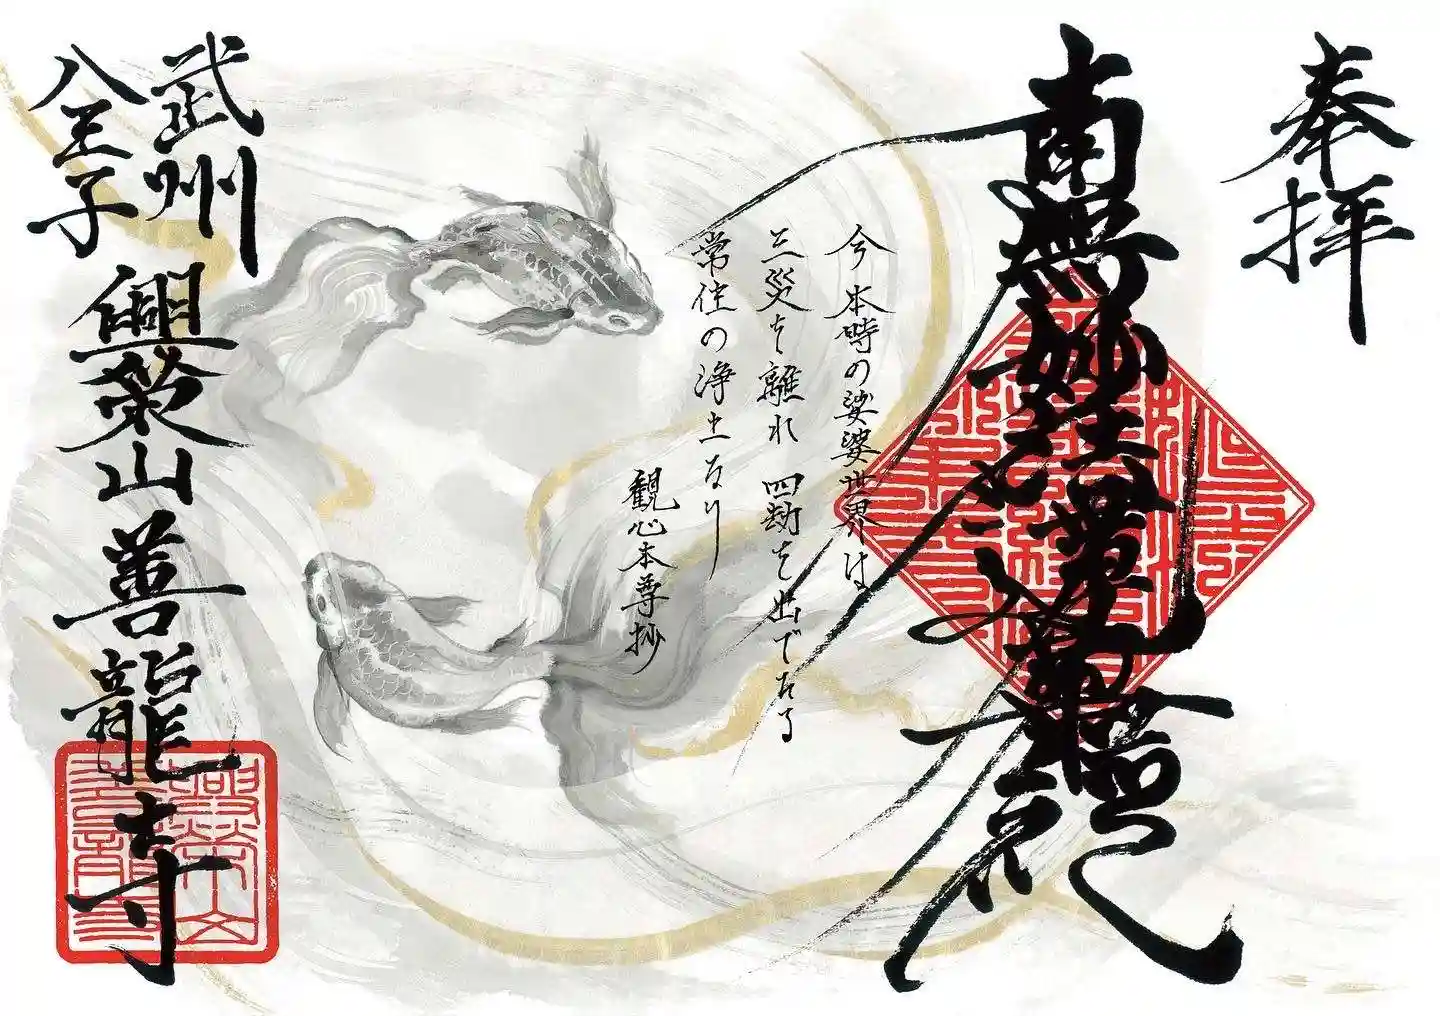 奉拝
南無妙法蓮華経
今本時の娑婆世界は
三災を離れ 四劫を出でたる
常住の浄土なり
観心本尊抄
武州
八王子
興栄山善龍寺